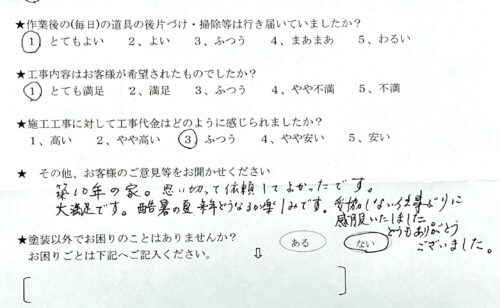 ★作業後の(毎日)の道具の後片づけ・掃除等は行き届いていましたか？
1、とてもよい　2、よい　3、ふつう　4、まあまあ　5、わるい
★工事内容はお客様が希望されたものでしたか？
1、とても満足　2、満足　3、ふつう　4、やや不満　5、不満
★施工工事に対して工事代金はどのように感じられましたか？
1、高い　2、やや高い　3、ふつう　4、やや安い　5、安い
★　その他、お客様のご意見等をお聞かせください
築10年の家。思い切って依頼してよかったです。
大満足です。酷暑の夏来年どうなるか楽しみです。妥協しない仕事ぶりに
感服いたしました
どうもありがとう
ございました。
★塗装以外でお困りのことはありませんか？　ある　ない
お困りごとは下記へご記入ください。　⇩